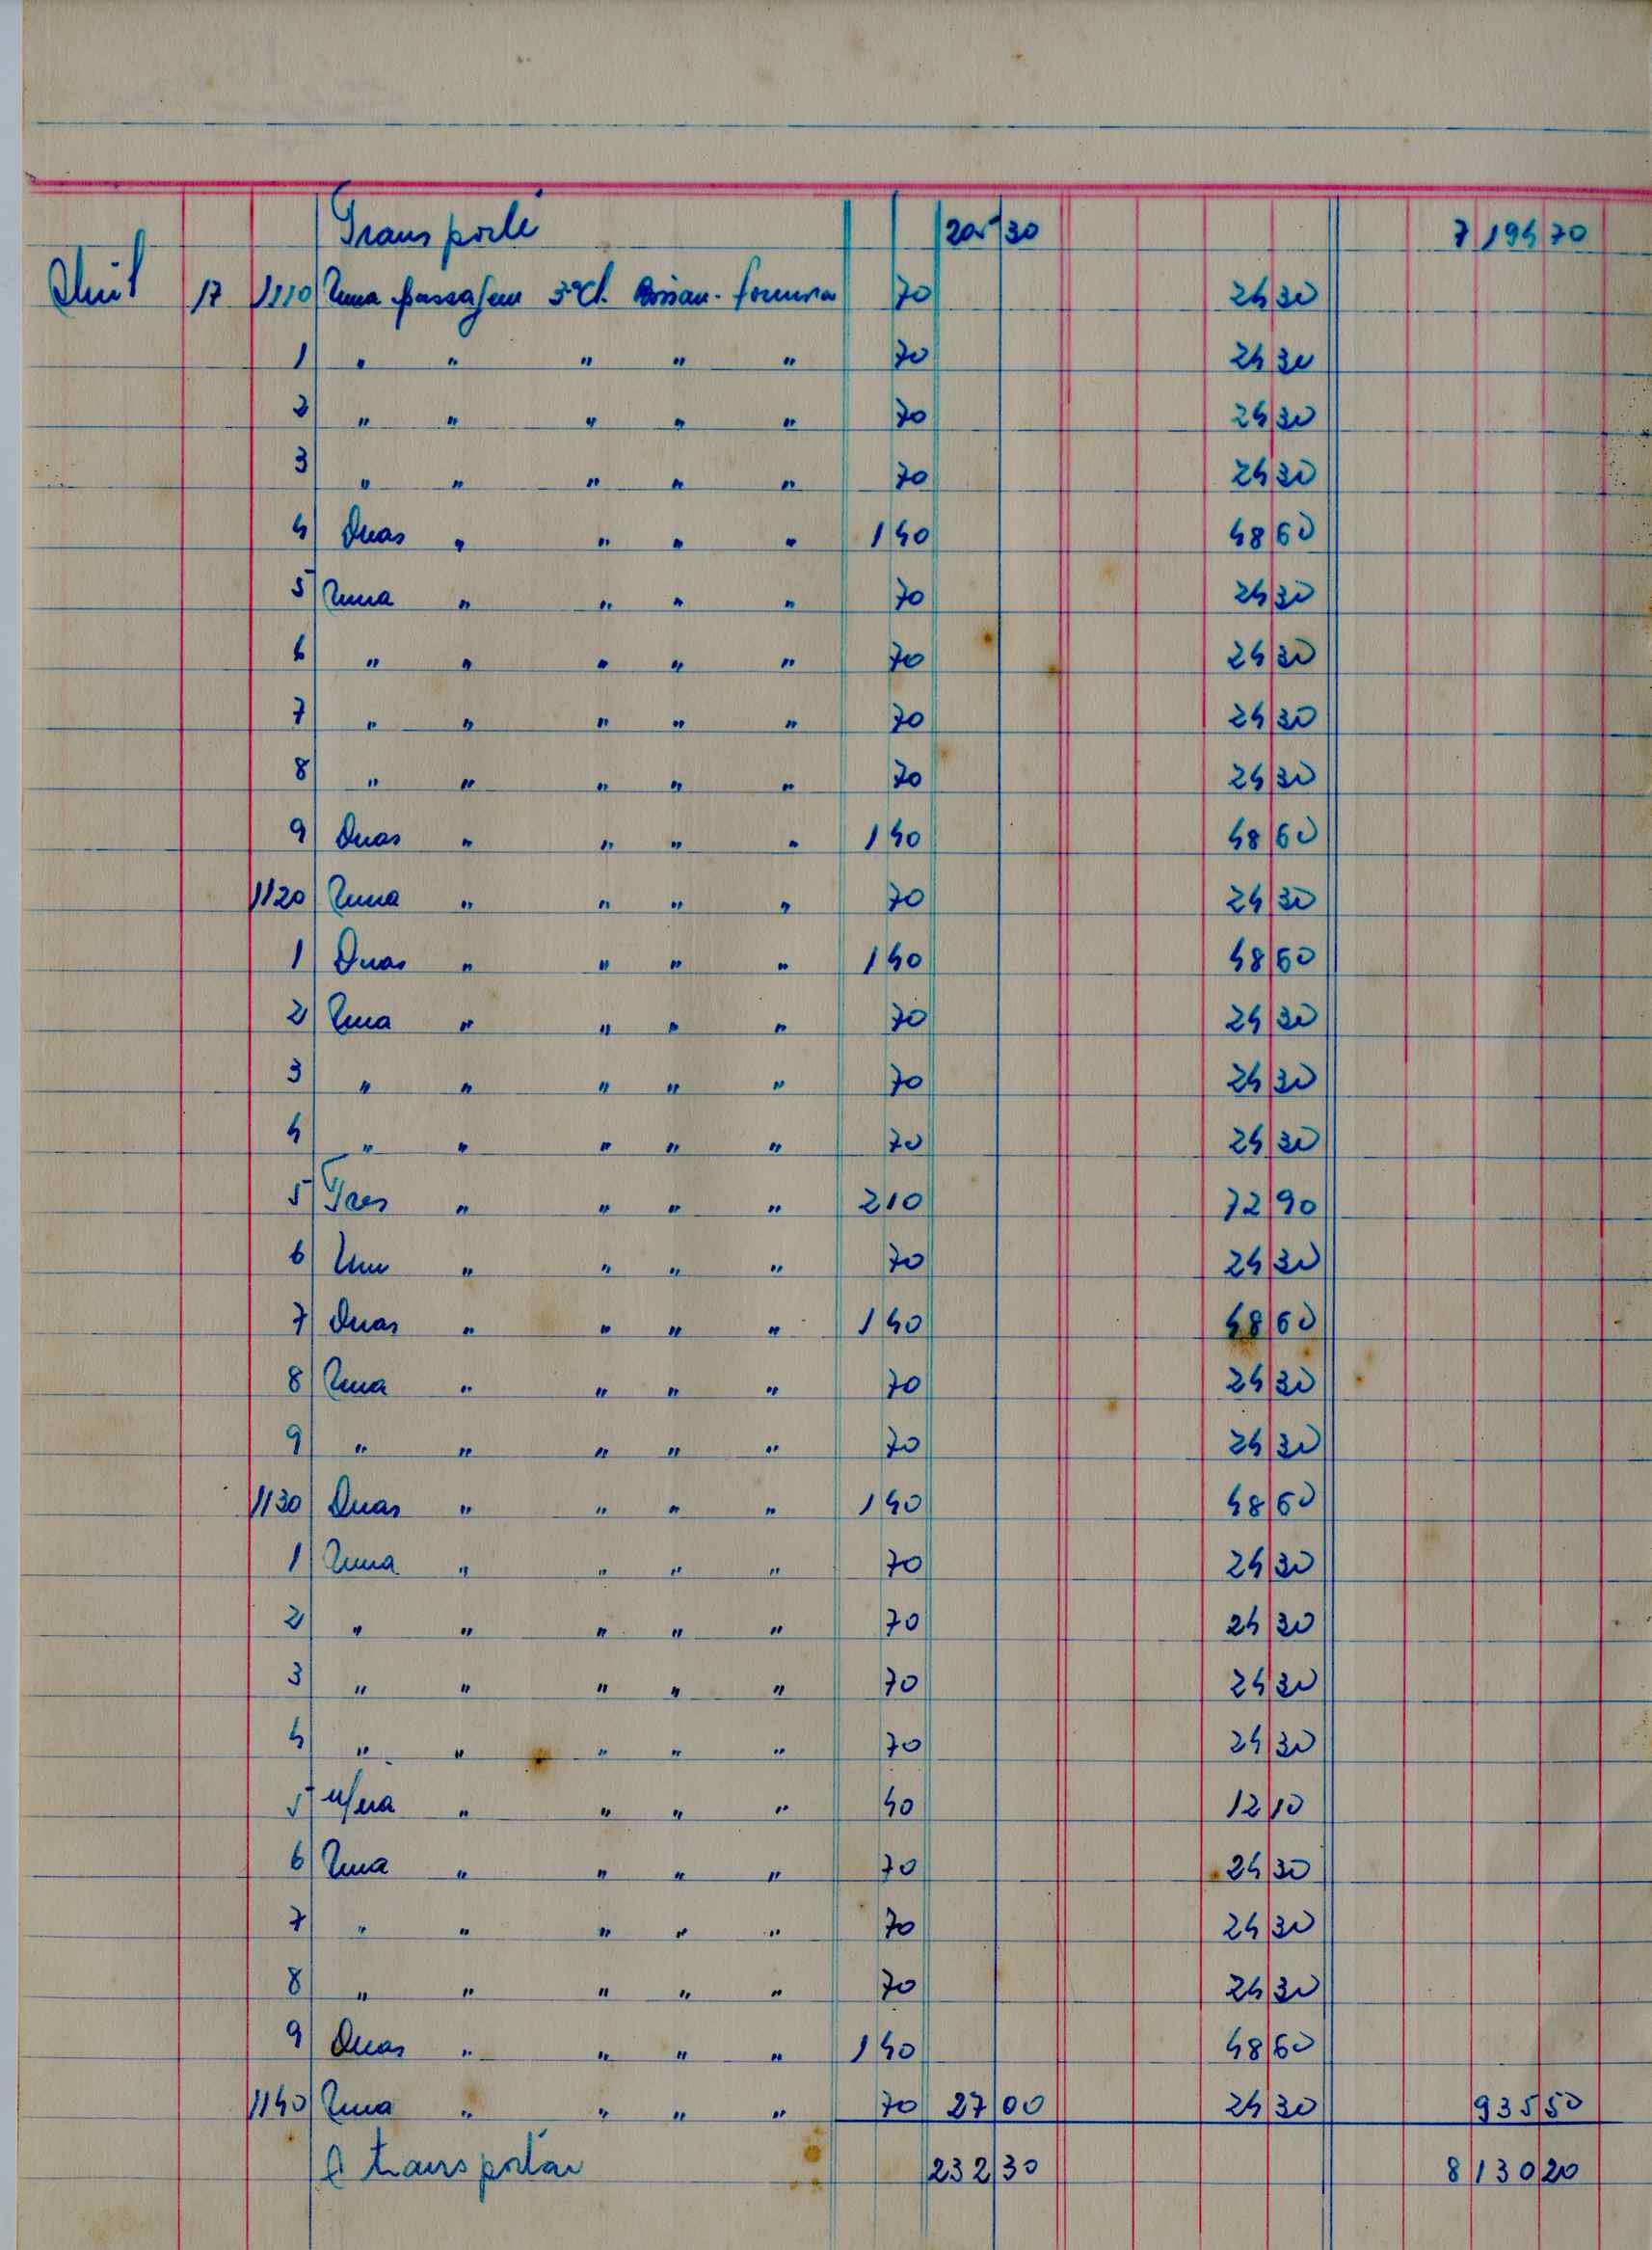 Transporte 205 30 7 194 70
Abril 17 1110 Uma passagem 3ªCl. Bissau- 70 24 30
1 " " " " " 70 24 30
2 " " " " " 70 24 30
3 " " " " " 70 24 30
4 Duas " " " " 140 48 60
5 Uma " " " " 70 24 30
6 " " " " " 70 24 30
7 " " " " " 70 24 30
8 " " " " " 70 24 30
9 Duas " " " " 140 48 60
1120 Uma " " " " 70 24 30
1 Duas " " " " 140 48 60
2 Uma " " " " 70 24 30
3 " " " " " 70 24 30
4 " " " " " 70 24 30
5 Tres " " " " 210 72 90
6 Um " " " " 70 24 30
7 Duas " " " " 140 48 60
8 Uma " " " " 70 24 30
9 " " " " " 70 24 30
1130 Duas " " " " 140 48 60
1 Uma " " " " 70 24 30
2 " " " " " 70 24 30
3 " " " " " 70 24 30
4 " " " " " 70 24 30
5 " " " " 40 12 10
6 Uma " " " " 70 24 30
7 " " " " " 70 24 30
8 " " " " " 70 24 30
9 Duas " " " " 140 48 60
1140 Uma " " " " 70 27 00 24 30 935 50
A transportar 232 30 8 130 20